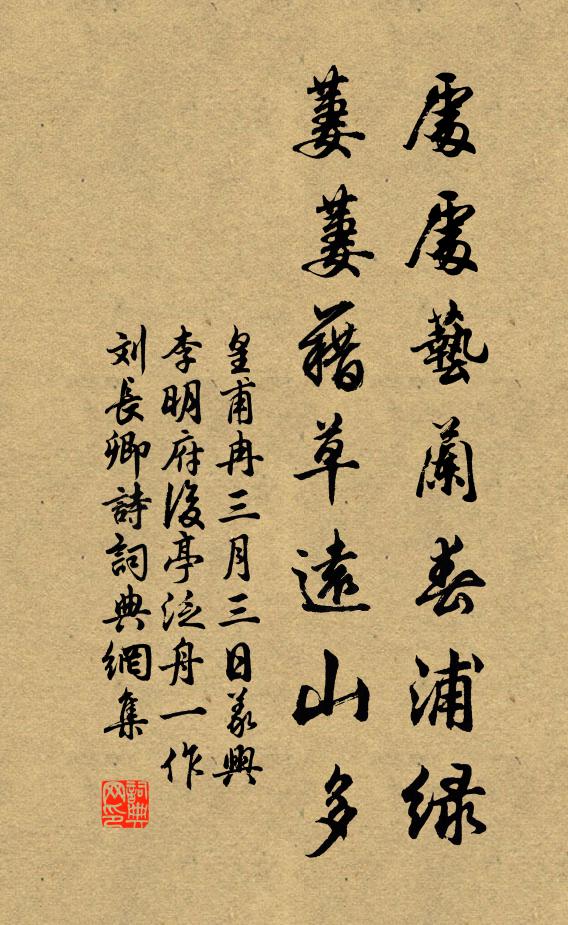 處處藝蘭春浦綠
萋萋藉草遠山多
皇甫冉三月三日義興
李明府後亭泛舟一作
刘長卿詩詞典網集
詞典网印